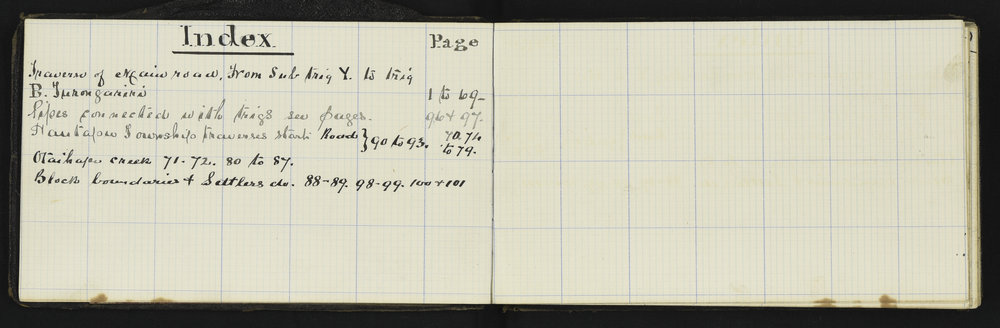 Index
Page
Traverse of Main road, From Sub trig Y. to trig
B. Turangarere 1 to 69-
Pipes connected with trigs see pages. 96 & 97.
Township traverses start Road } 90 to 93. 70. 74. to 79.
Otaihape creek 71-72. 80 to 87.
Block boundaries & Settlers do. 88-89. 98-99. 100 & 101